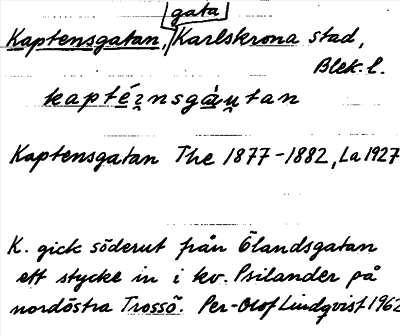 gata
Kaptensgatan, Karlskrona stad,
Blek. l.
kapté̱ṉsgàṵtan
Kaptensgatan The 1877-1882, La 1927
K. gick söderut från Ölandsgatan
ett stycke in i kv. Psilander på
nordöstra Trossö. Per-Olof Lindqvist 1962